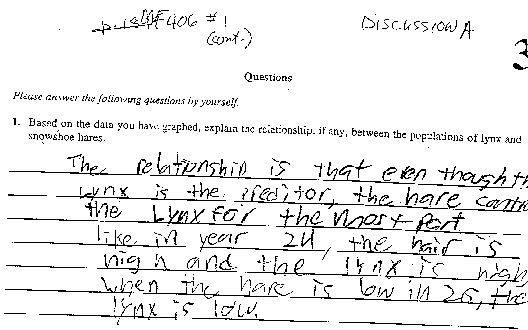 MF406 #1
(cont.)
Discussion A
3
Questions
Please answer the following questions by yourself.
1. Based on the data you have graphed, explain the relationship, if any, between the populations of lynx and
snowshoe hares.
The relationship is that even though th
Lynx is the preditor, the hare contro
the Lynx for the most part
like in year 24, the hair is
high and the lynx is high
when the hare is low in 26, the
lynx is low.